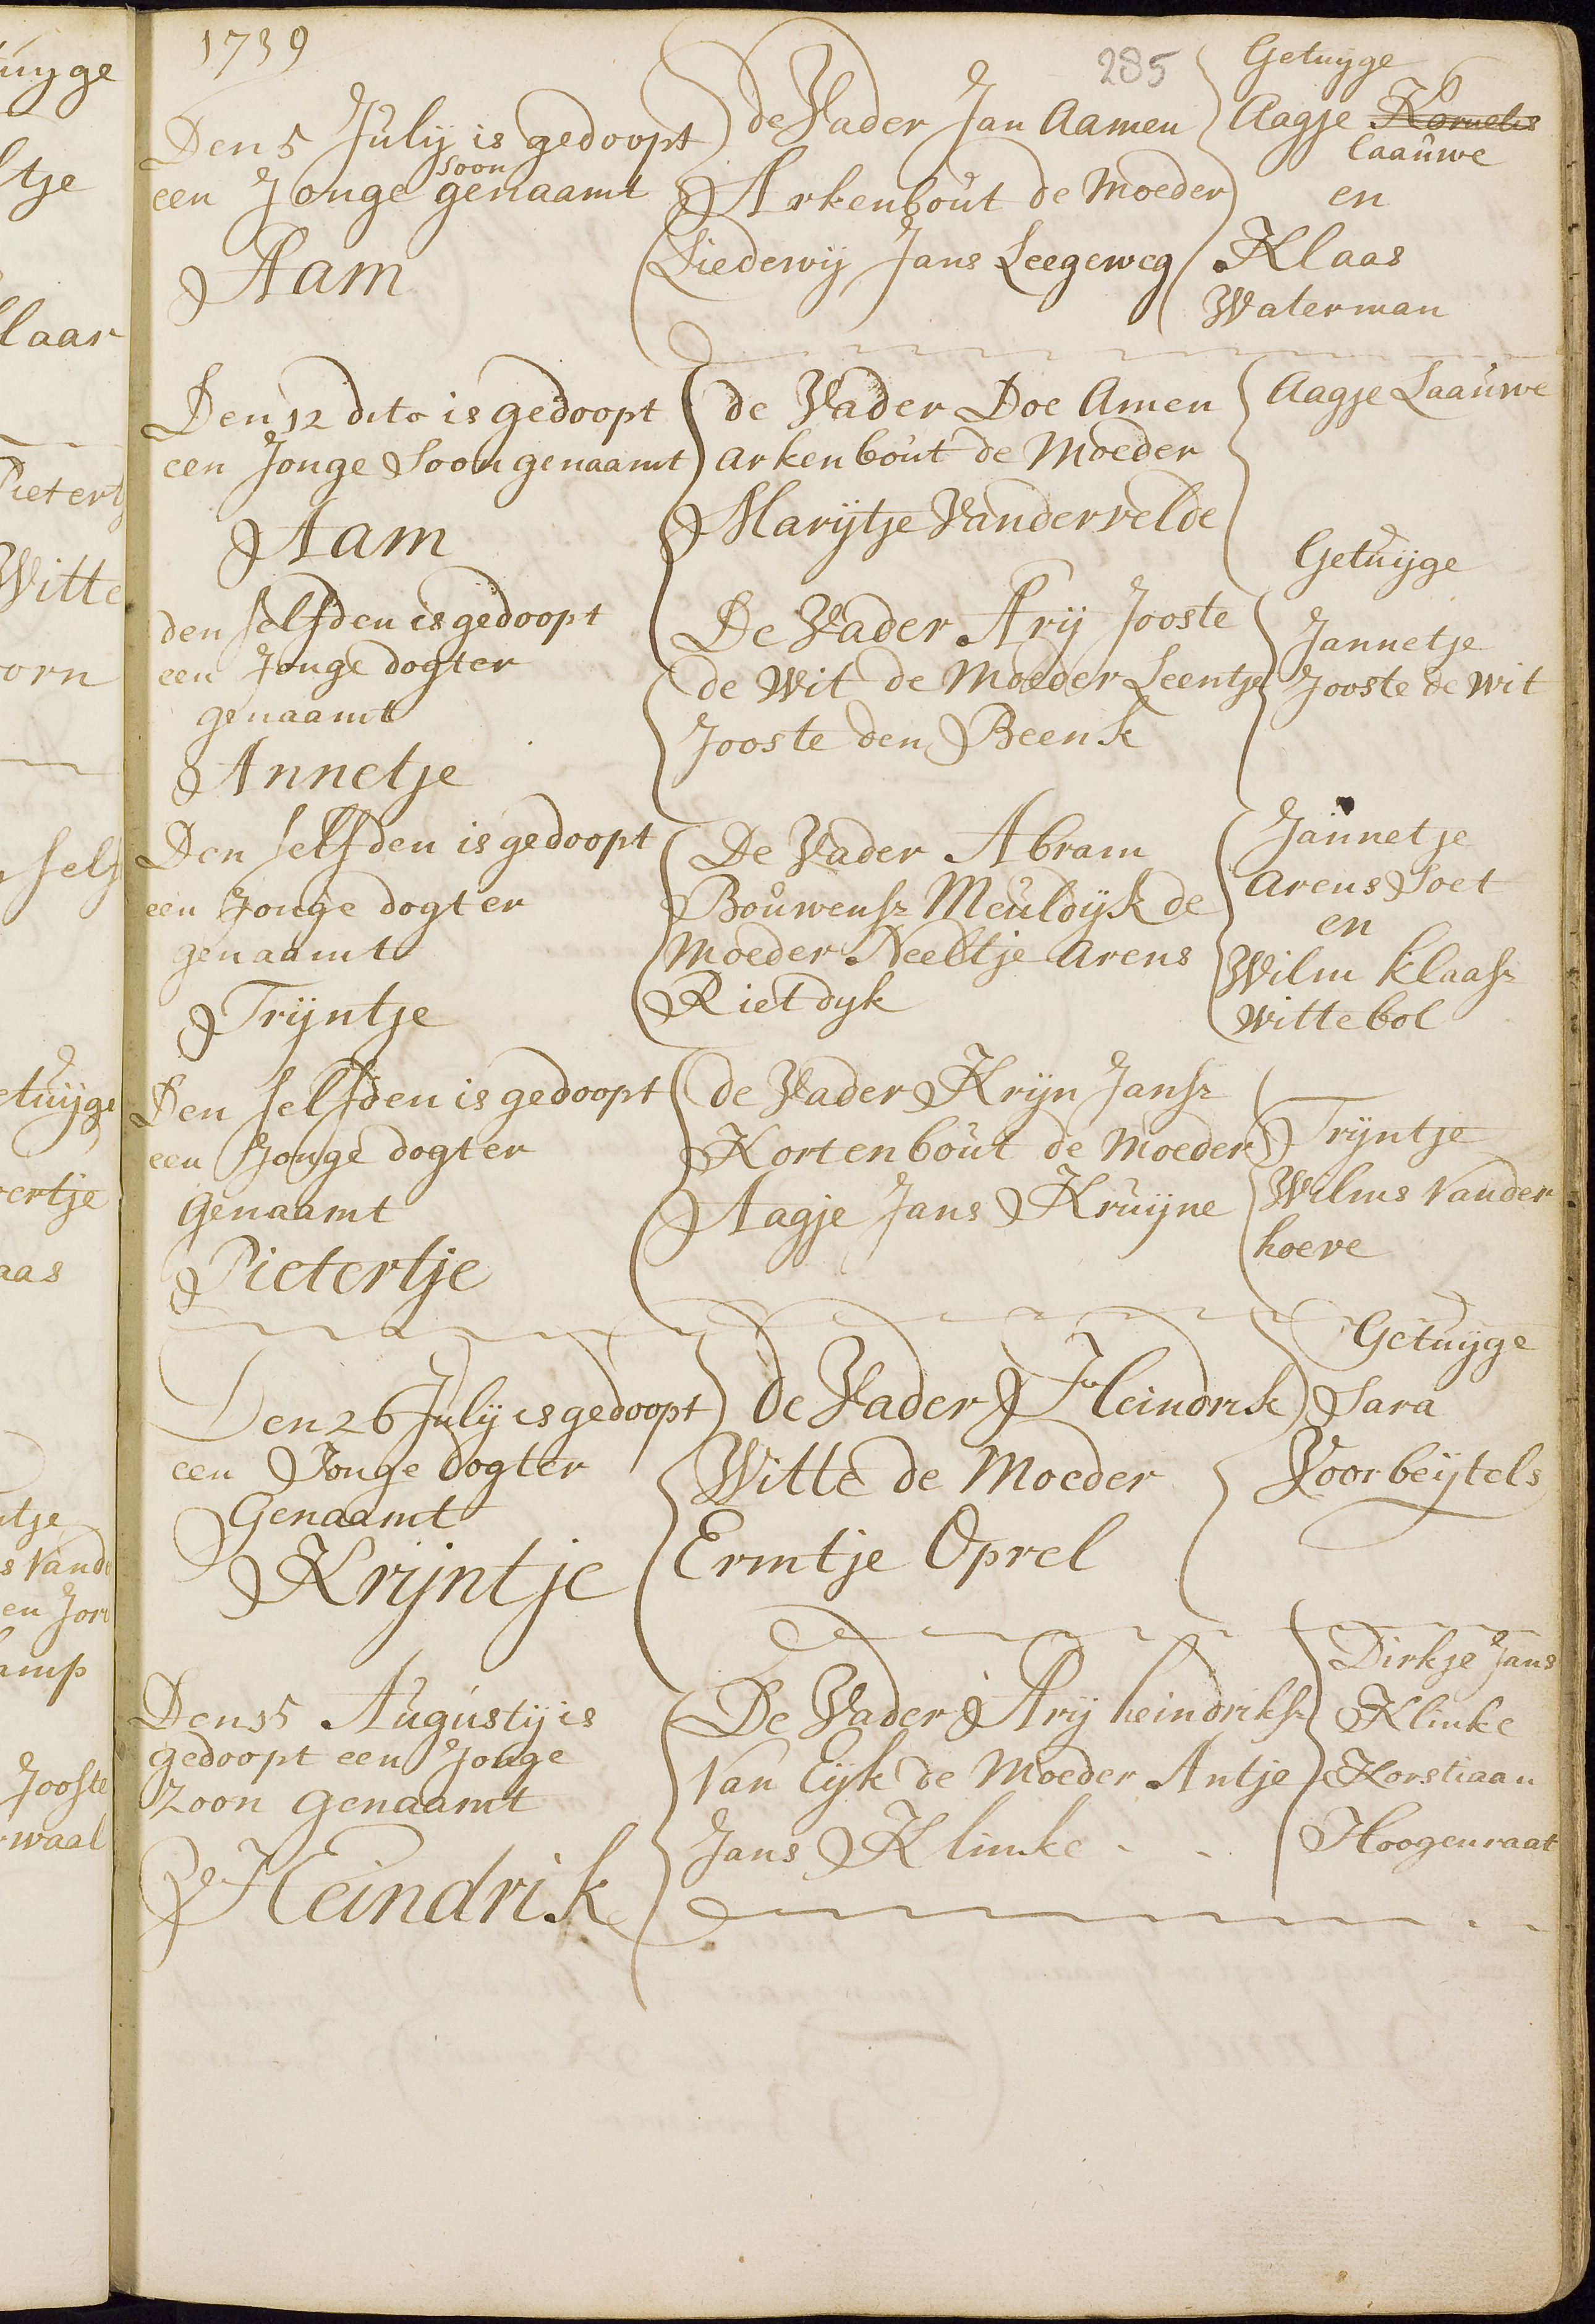 1739
285
Den 5 July is gedoopt
soon
een Jonge genaamt
Aam
de Vader Jan Aamen
Arkenbout de Moeder
Liedewij Jans Leegeweg
Getuyge
Aagje Kornelis
Laauwe
en
Klaas
Waterman
Den 12 dito is gedoopt
een Jonge Soon genaamt
Aam
de Vader Doe Amen
arkenbout de Moeder
Marijtje Vandervelde
Aagje Laauwe
den selfden is gedoopt
een Jonge dogter
genaamt
Annetje
De Vader Arij Jooste
de Wit de Moeder Leentje
Jooste den Beenk
Getuijge
Jannetje
Jooste de wit
Den selfden is gedoopt
een Jonge dogter
genaamt
Trijntje
De Vader Abram
Bouwensz Meuldijk de
Moeder Neeltje Arens
Rietdyk
Jannetje
Arens Soet
en
Wilm klaasz
wittebol
Den selfden is gedoopt
een Jonge dogter
genaamt
Pietertje
de Vader Krijn Jansz
Kortenbout de Moeder
Aagje Jans Kruijne
Trijntje
Wilms Vander
hoeve
Den 26 July is gedoopt
een Jonge dogter
Genaamt
Krijntje
de Vader Heindrik
Witte de Moeder
Ermtje Oprel
Getuyge
Sara
Voorbeijtels
Den 15 Augustij is
gedoopt een Jonge
Zoon genaamt
Heindrik
De Vader Arij heindriksz
Van Eijk de Moeder Antje
Jans Klinke
Dirkje Jans
Klinke
Korstiaan
Hoogenraat